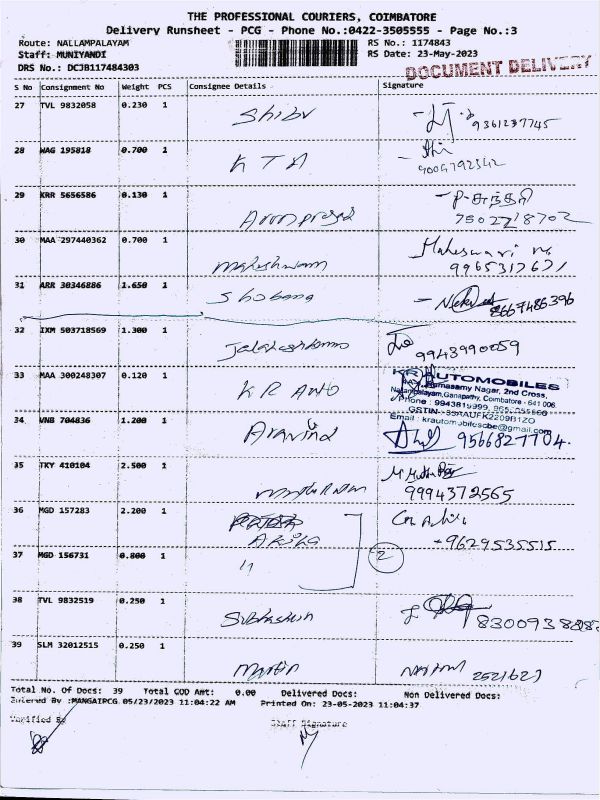 THE PROFESSIONAL COURIERS, COIMBATORE
Delivery Runsheet - PCG - Phone No.:0422-3505555 - Page No.:3
Route: NALLAMPALAYAM RS No.: 1174843
Staff: MUNIYANDI RS Date: 23-May-2023
DRS No.: DCJB117484303 DOCUMENT DELIVERY
S No Consignment No Weight PCS Consignee Details Signature
27 TVL 9832058 0.230 1 Shibu 9361237745
28 WAG 195818 0.700 1 KTA 9004792342
29 KRR 5656586 0.130 1 Arunprasad P-சுந்தரி
7502218702
30 MAA 297440362 0.700 1 Maheshwari Maheswari
9965317671
31 ARR 30346886 1.650 1 Shobana 8667486396
32 IXM 503718569 1.300 1 9943990059
33 MAA 300248307 0.120 1 KR Auto KR AUTOMOBILES
Ramasamy Nagar, 2nd Cross,
Nallampalayam, Ganapathy, Coimbatore - 641 006
Phone : 9943819999,
GSTIN-33AAUFK2209B1ZO
Email : krautomobilescbe@gmail.com
34 VNB 704836 1.200 1 Aravind 9566827704.
35 TKY 410104 2.500 1 9994372565
36 MGD 157283 2.200 1 +9629535515
37 MGD 156731 0.800 1 11 2
38 TVL 9832519 0.250 1
39 SLM 32012515 0.250 1 Martin 2521627
Total No. Of Docs: 39 Total COD Amt: 0.00 Delivered Docs: Non Delivered Docs:
Entered By :MANGAIPCG 05/23/2023 11:04:22 AM Printed On: 23-05-2023 11:04:37
Varified By Staff Signature